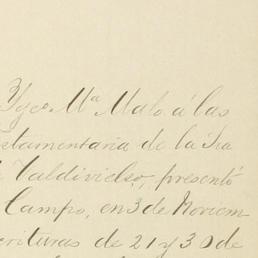 Fyco Mª Malo á las
estamentaria de la Sra
Valdivielso, presentó
Campo, en 3 de Noviem
crituras de 21 y 30 de